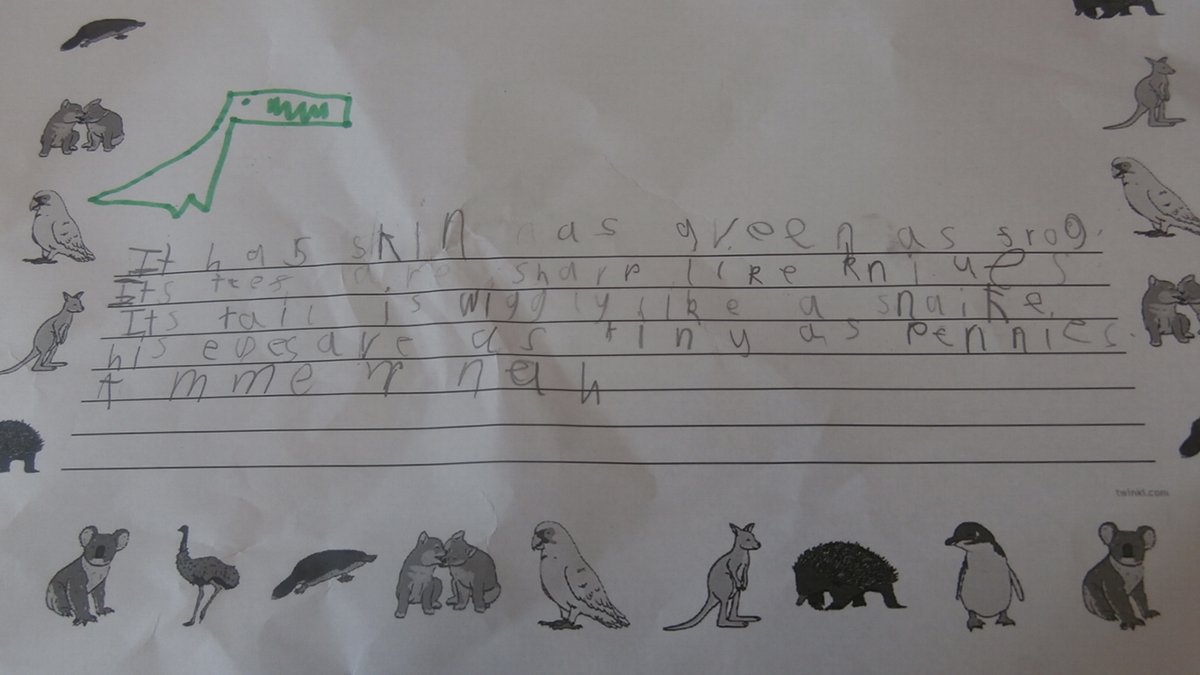 It has skin as green as srog.
Its tees are sharp like knives
Its tail is wiggly like a snaike.
his eyes are as tiny as pennies.
twinkl.com